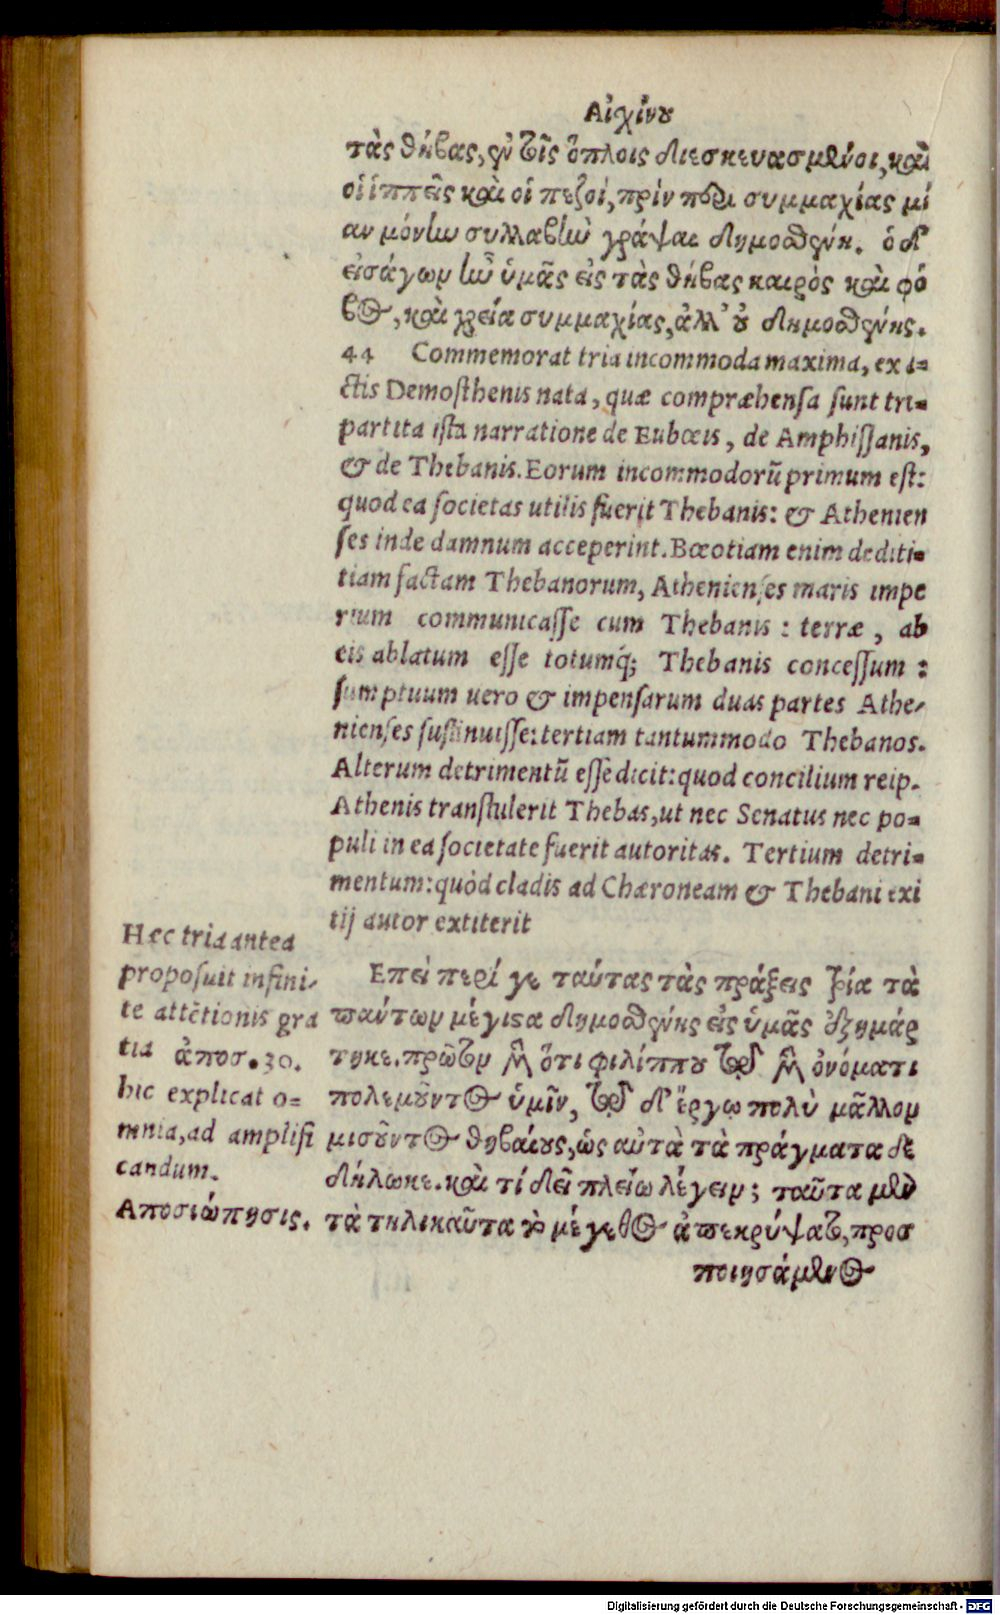 Αἰχίνου
τὰς θήβας, ἐν τοῖς ὅπλοις διεσκευασμένοι, καὶ
οἱ ἱππεῖς καὶ οἱ πεζοί, πρὶν περὶ συμμαχίας μί
αν μόνην συλλαβὴν γράψαι δημοσθένη. ὁ δ'
εἰσάγων ἦν ὑμᾶς εἰς τὰς θήβας καιρὸς καὶ φό
βος, καὶ χρεία συμμαχίας, ἀλλ' οὐ δημοσθένης.
44 Commemorat tria incommoda maxima, ex i=
ctis Demosthenis nata, quæ compræhensa sunt tri=
partita ista narratione de Eubœis, de Amphissanis,
& de Thebanis. Eorum incommodorū primum est:
quod ea societas utilis fuerit Thebanis: & Athenien
ses inde damnum acceperint. Bœotiam enim dediti=
tiam factam Thebanorum, Athenienses maris impe
rium communicasse cum Thebanis: terræ, ab
eis ablatum esse totumq́; Thebanis concessum:
sumptuum uero & impensarum duas partes Athe-
nienses sustinuisse: tertiam tantummodo Thebanos.
Alterum detrimentū esse dicit: quod concilium reip.
Athenis transtulerit Thebas, ut nec Senatus nec po=
puli in ea societate fuerit autoritas. Tertium detri=
mentum: quòd cladis ad Chæroneam & Thebani exi
tij autor extiterit
Hæc tria antea
proposuit infini-
te attētionis gra
tia ἀποσ. 30.
hic explicat o=
mnia, ad amplifi
candum.
Αποσιώπησις.
Επεὶ περί γε ταύτας τὰς πράξεις τρία τὰ
πάντων μέγιστα δημοσθένης εἰς ὑμᾶς ἐξημάρ
τηκε. πρῶτον μὲν ὅτι φιλίππου τῷ μὲν ὀνόματι
πολεμοῦντος ὑμῖν, τῷ δ' ἔργῳ πολὺ μᾶλλον
μισοῦντος θηβαίους, ὡς αὐτὰ τὰ πράγματα δε
δήλωκε. καὶ τί δεῖ πλείω λέγειν; ταῦτα μὲν
τὰ τηλικαῦτα τὸ μέγεθος ἀπεκρύψατο, προσ
ποιησάμενος
Digitalisierung gefördert durch die Deutsche Forschungsgemeinschaft - DFG